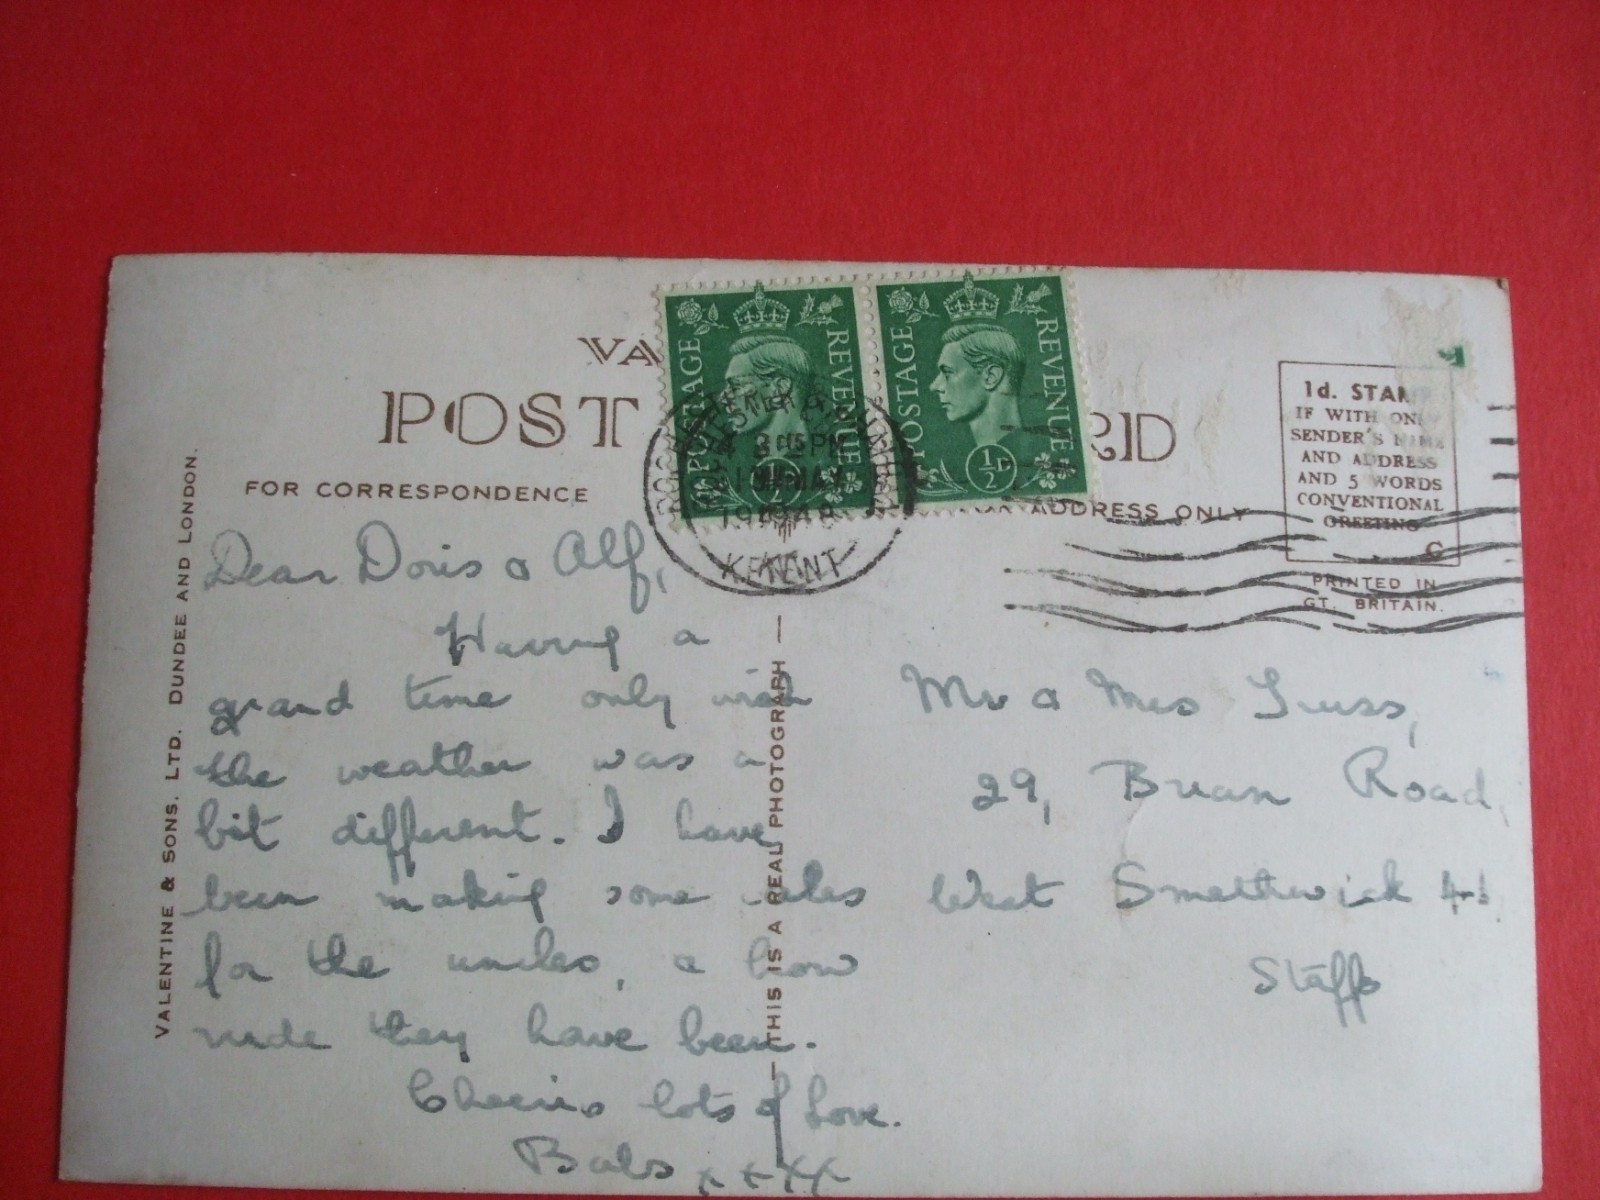 POST
RD
FOR CORRESPONDENCE
ADDRESS ONLY
VALENTINE & SONS. LTD. DUNDEE AND LONDON.
— THIS IS A REAL PHOTOGRAPH —
POSTAGE REVENUE
½
POSTAGE REVENUE
½D
MAY
KENT
1d. STAMP
IF WITH ONLY
SENDER'S NAME
AND ADDRESS
AND 5 WORDS
CONVENTIONAL
GREETING
C
PRINTED IN
GT. BRITAIN.
Dear Doris & Alf,
Having a
grand time only wish
the weather was a
bit different. I have
been making some
for the uncles, & how
rude they have been.
Cheerio lots of Love.
Babs xxxx
Mr & Mrs
29, Brian Road,
West Smethwick
Staffs